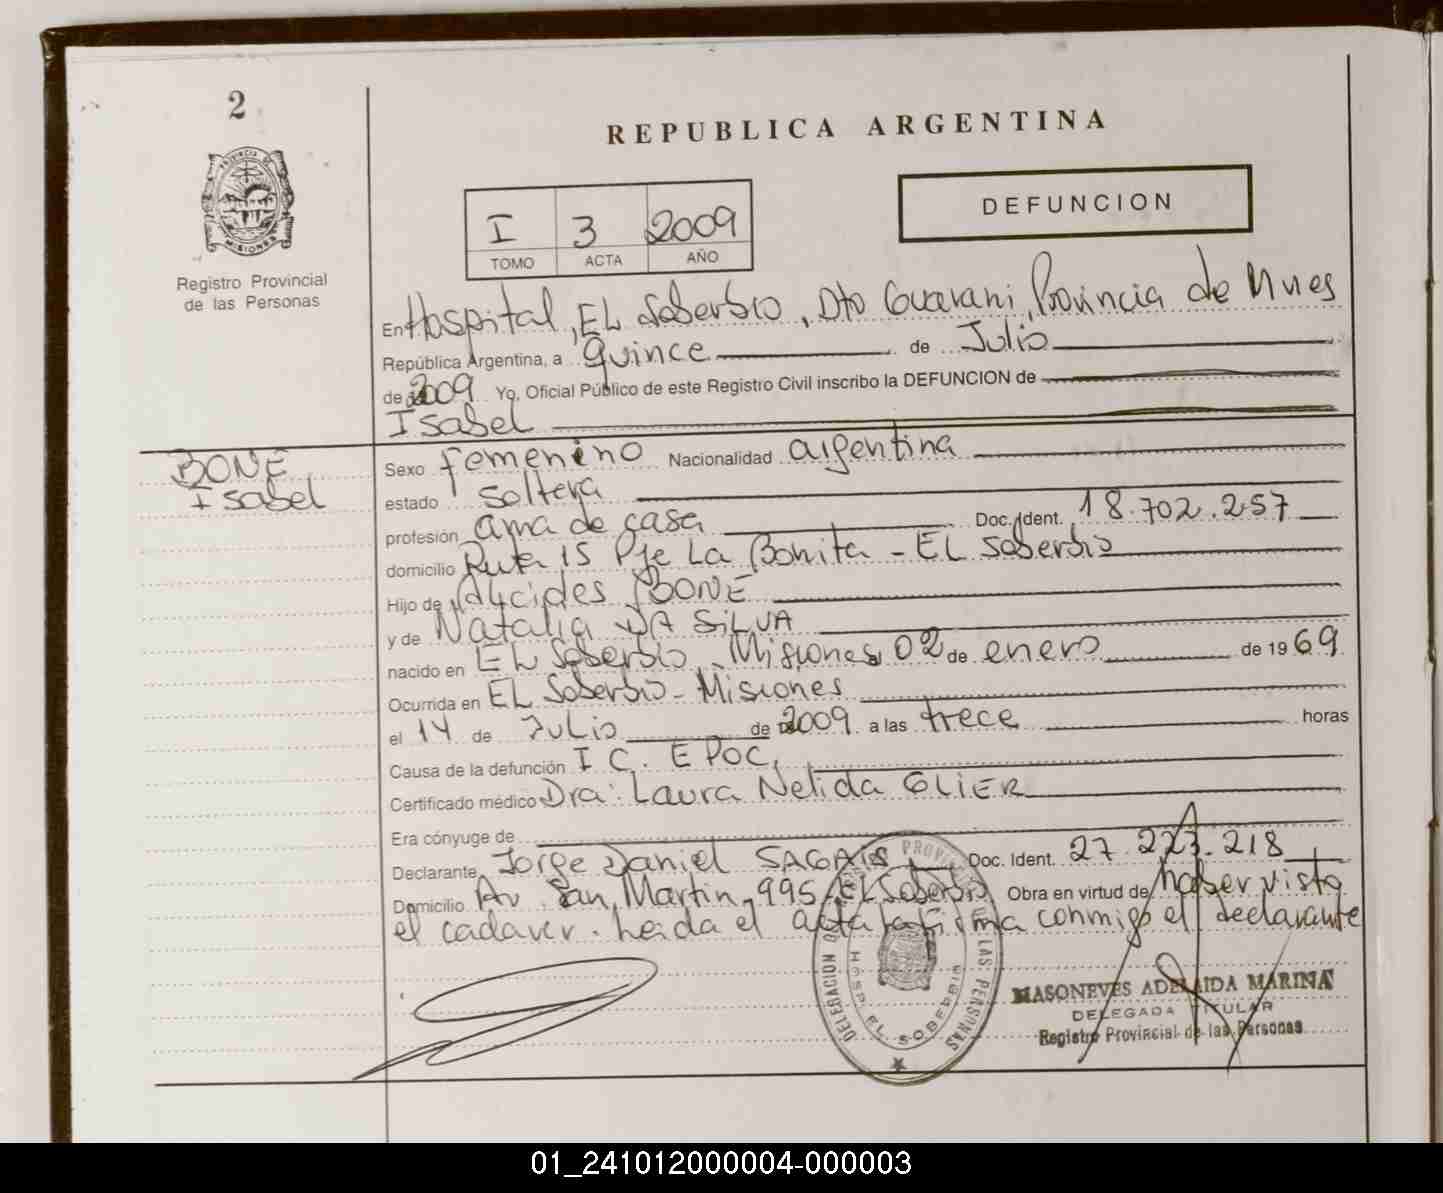 2
REPUBLICA ARGENTINA
DEFUNCION
I 3 2009
TOMO ACTA AÑO
PROVINCIA DE
MISIONES
Registro Provincial
de las Personas
En Hospital, EL Soberbio, Dto Guarani, Provincia de Mnes
República Argentina, a quince de Julio
de 2009 Yo, Oficial Público de este Registro Civil inscribo la DEFUNCION de
Isabel
BONE
Isabel
Sexo femenino Nacionalidad argentina
estado soltera
profesión ama de casa Doc. Ident. 18.702.257
domicilio Ruta 15 Pje La Bonita - EL Soberbio
Hijo de Alycides BONE
y de Natalia DA SILVA
nacido en EL Soberbio, Misiones 02 de enero de 1969
Ocurrida en EL Soberbio - Misiones
el 14 de Julio de 2009 a las trece horas
Causa de la defunción I C. EPOC,
Certificado médico Dra: Laura Nelida GLIER
Era cónyuge de
Declarante Jorge Daniel Doc. Ident. 27.223.218
Domicilio Av. San Martin 995 EL Soberbio Obra en virtud de haber visto
el cadaver. Leida el acta la firma conmigo el declarante
DELEGACION PROVINCIAL DE LAS PERSONAS
HOSP. EL SOBERBIO
MASONEVES ADELAIDA MARINA
DELEGADA TITULAR
Registro Provincial de las Personas
01_241012000004-000003